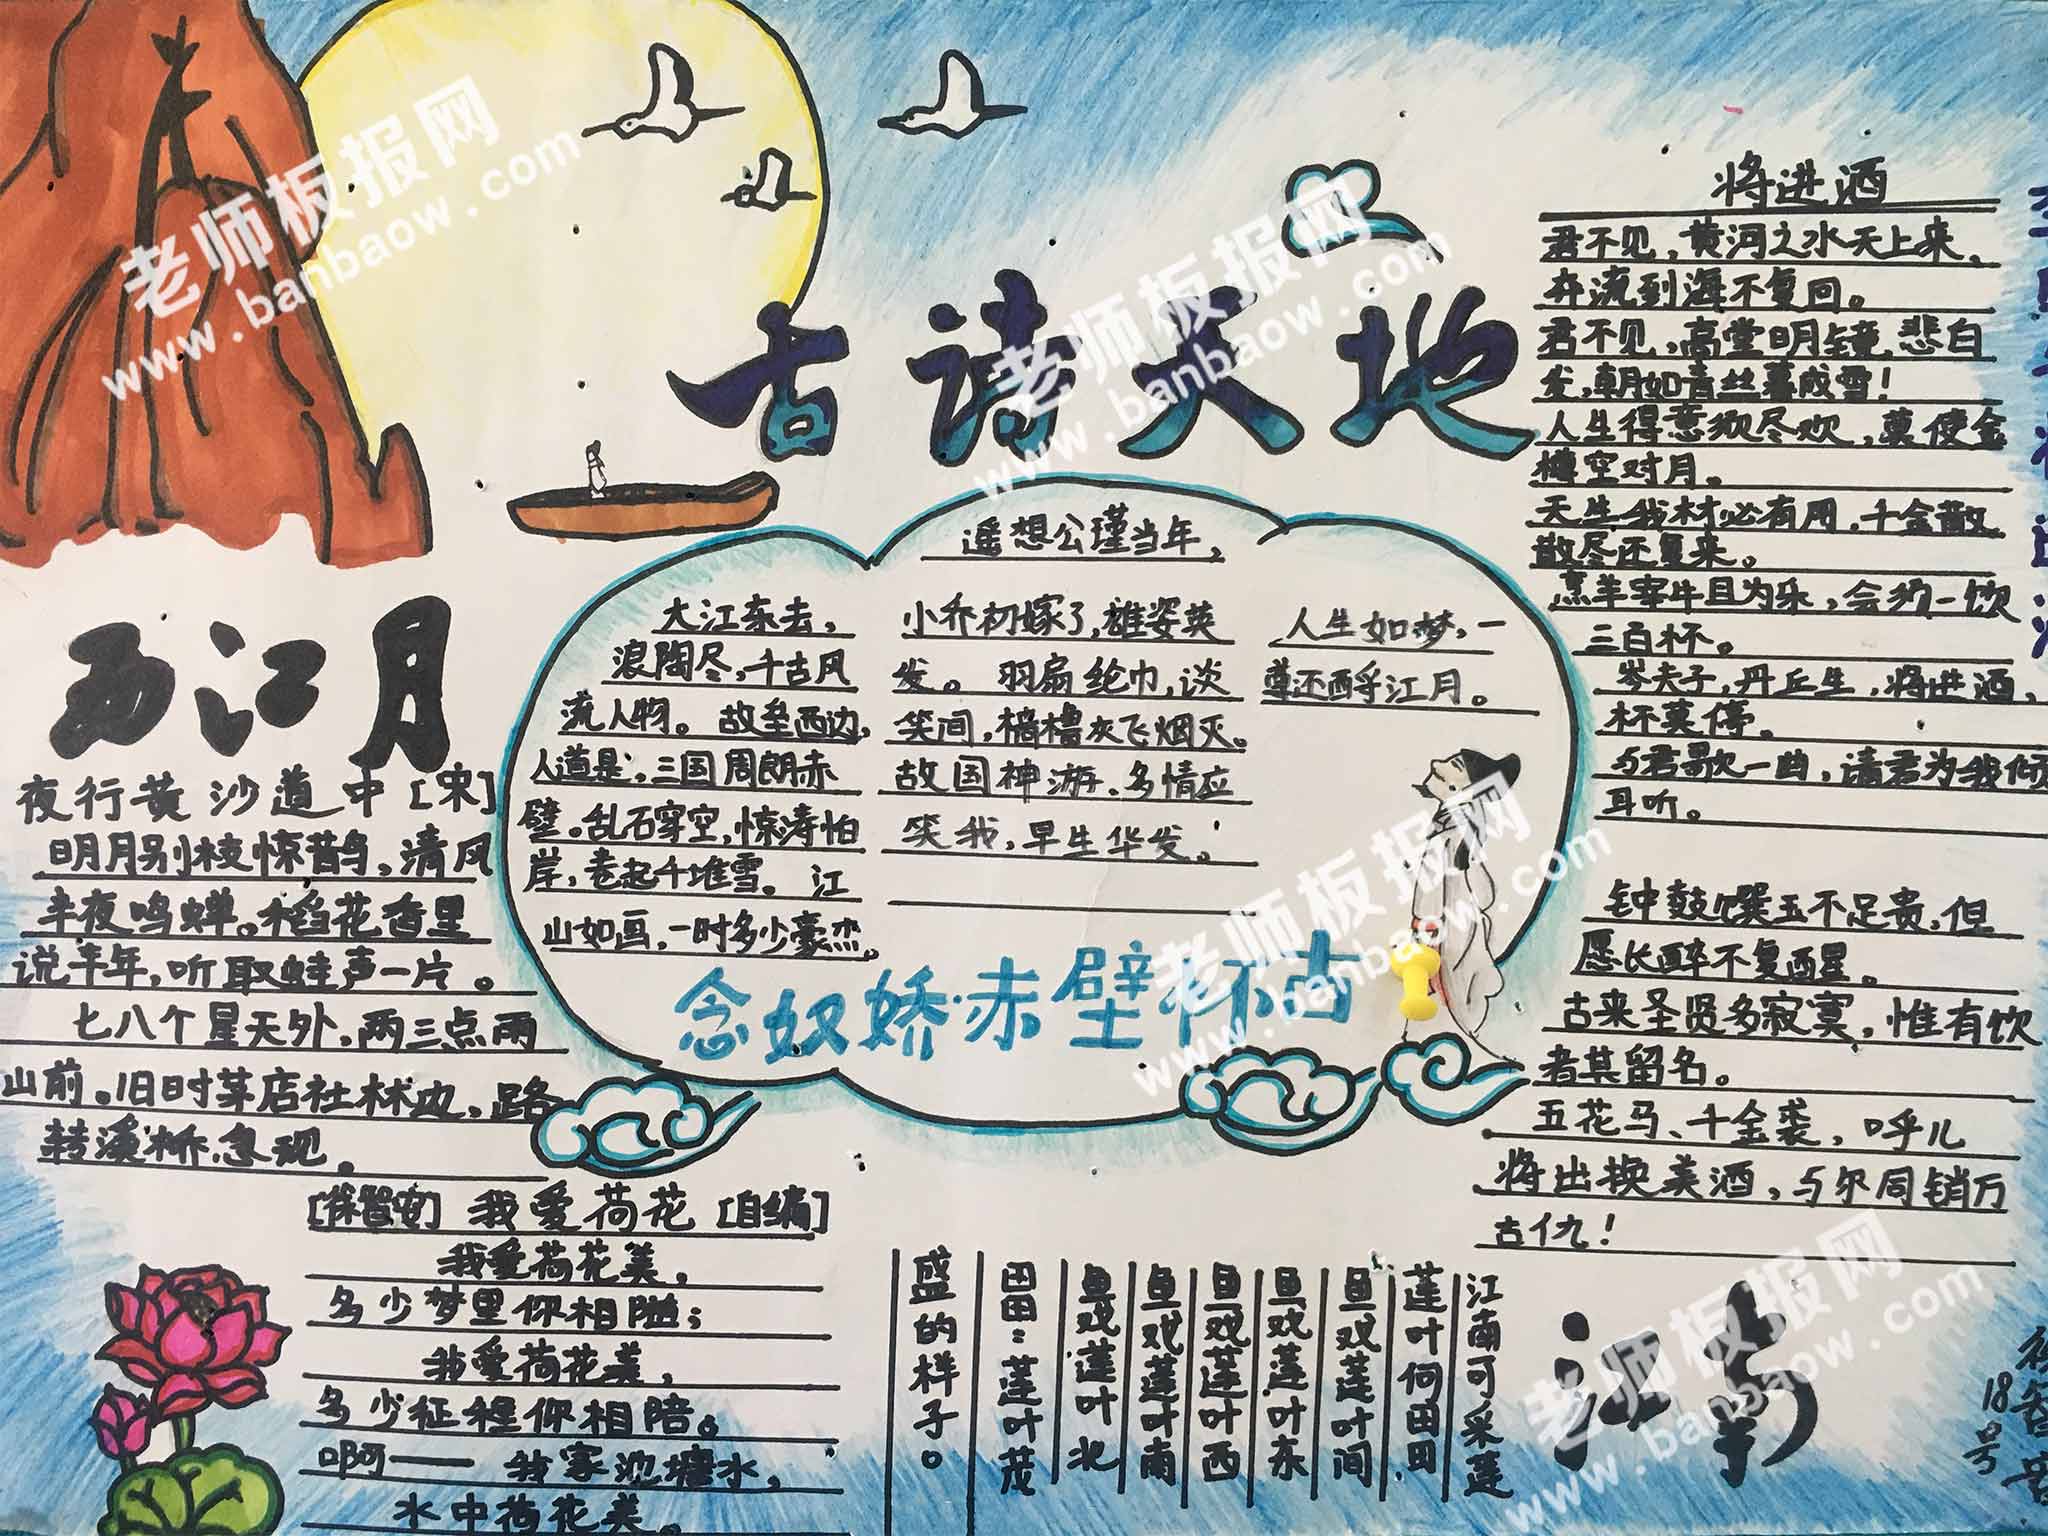 古诗天地
西江月
夜行黄沙道中[宋]
明月别枝惊鹊,清风
半夜鸣蝉。稻花香里
说丰年,听取蛙声一片。
七八个星天外,两三点雨
山前。旧时茅店社林边,路
转溪桥忽现。
遥想公瑾当年,
大江东去,
浪陶尽,千古风
流人物。故垒西边,
人道是,三国周朗赤
壁。乱石穿空,惊涛怕
岸,卷起千堆雪。江
山如画,一时多少豪杰。
小乔初嫁了,雄姿英
发。羽扇纶巾,谈
笑间,樯橹灰飞烟灭。
故国神游,多情应
笑我,早生华发。
人生如梦,一
尊还酹江月。
念奴娇·赤壁怀古
将进酒
君不见,黄河之水天上来,
奔流到海不复回。
君不见,高堂明镜悲白
发,朝如青丝暮成雪!
人生得意须尽欢,莫使金
樽空对月。
天生我材必有用,千金散
散尽还复来。
烹羊宰牛且为乐,会须一饮
三百杯。
岑夫子,丹丘生,将进酒,
杯莫停。
与君歌一曲,请君为我倾
耳听。
钟鼓馔玉不足贵,但
愿长醉不复醒。
古来圣贤多寂寞,惟有饮
者其留名。
五花马、千金裘,呼儿
将出换美酒,与尔同销万
古仇!
我爱荷花 [自编]
我爱荷花美,
多少梦里你相随;
我爱荷花美,
多少征程你相陪。
啊—— 我家池塘水,
水中荷花美。
江南
江南可采莲
莲叶何田田
鱼戏莲叶间
鱼戏莲叶东
鱼戏莲叶西
鱼戏莲叶南
鱼戏莲叶北
田田:莲叶茂
盛的样子。
18号
老师板报网
www.banbaow.com
老师板报网
www.banbaow.com
老师板报网
www.banbaow.com
老师板报网
www.banbaow.com